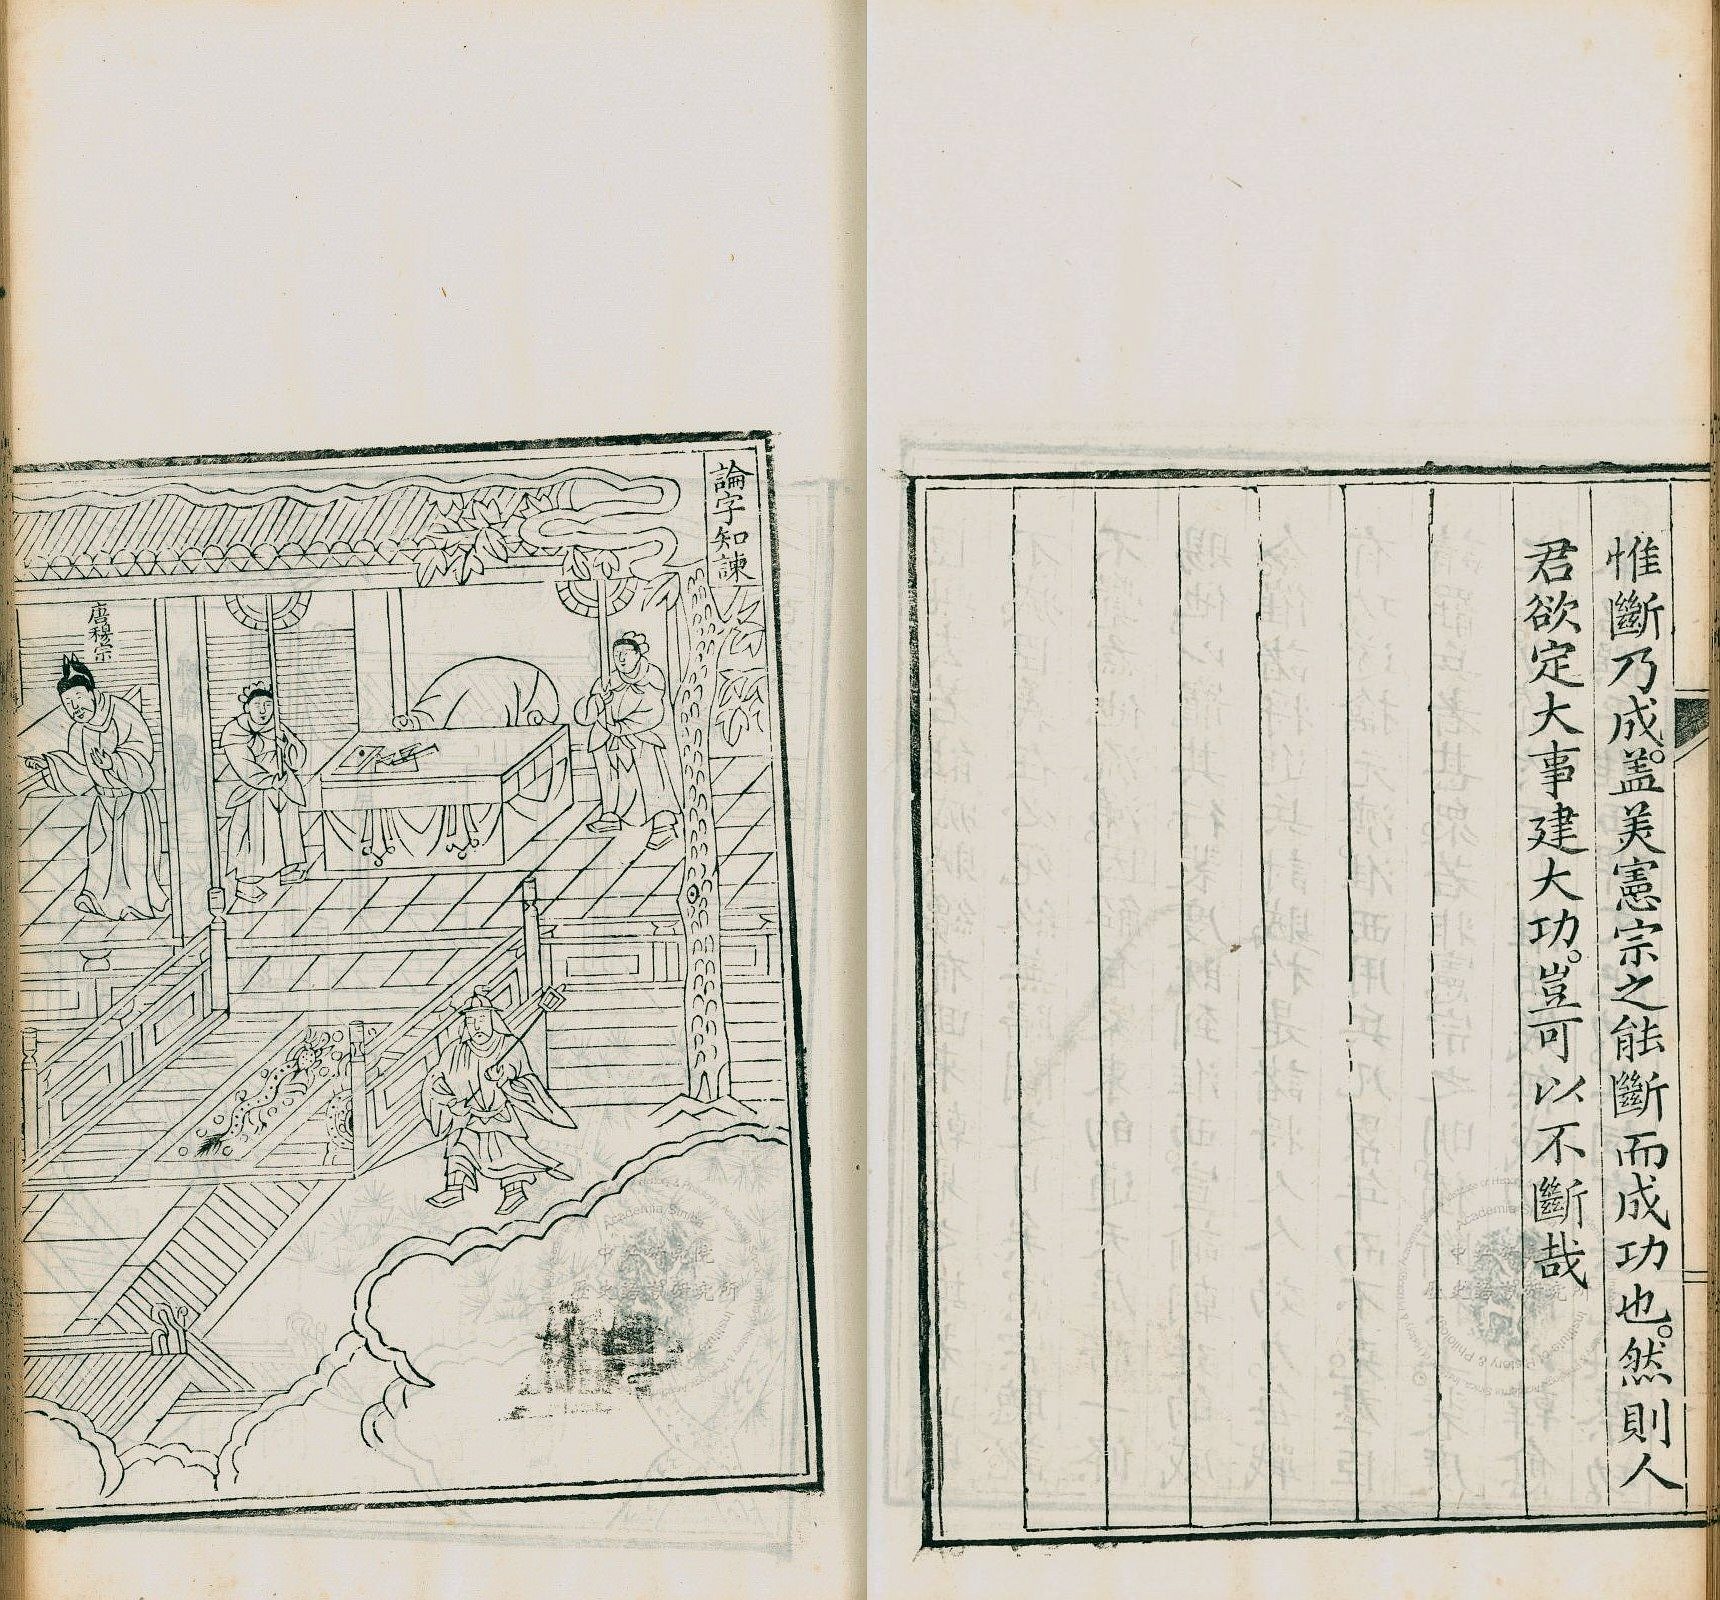 惟斷乃成。葢美憲宗之能斷而成功也。然則人
君欲定大事建大功。豈可以不斷哉
論字知諫
唐穆宗
Academia Sinica
中央研究院
歷史語言研究所
Institute of History & Philology
Academia Sinica
中央研究院
歷史語言研究所
Institute of History & Philology